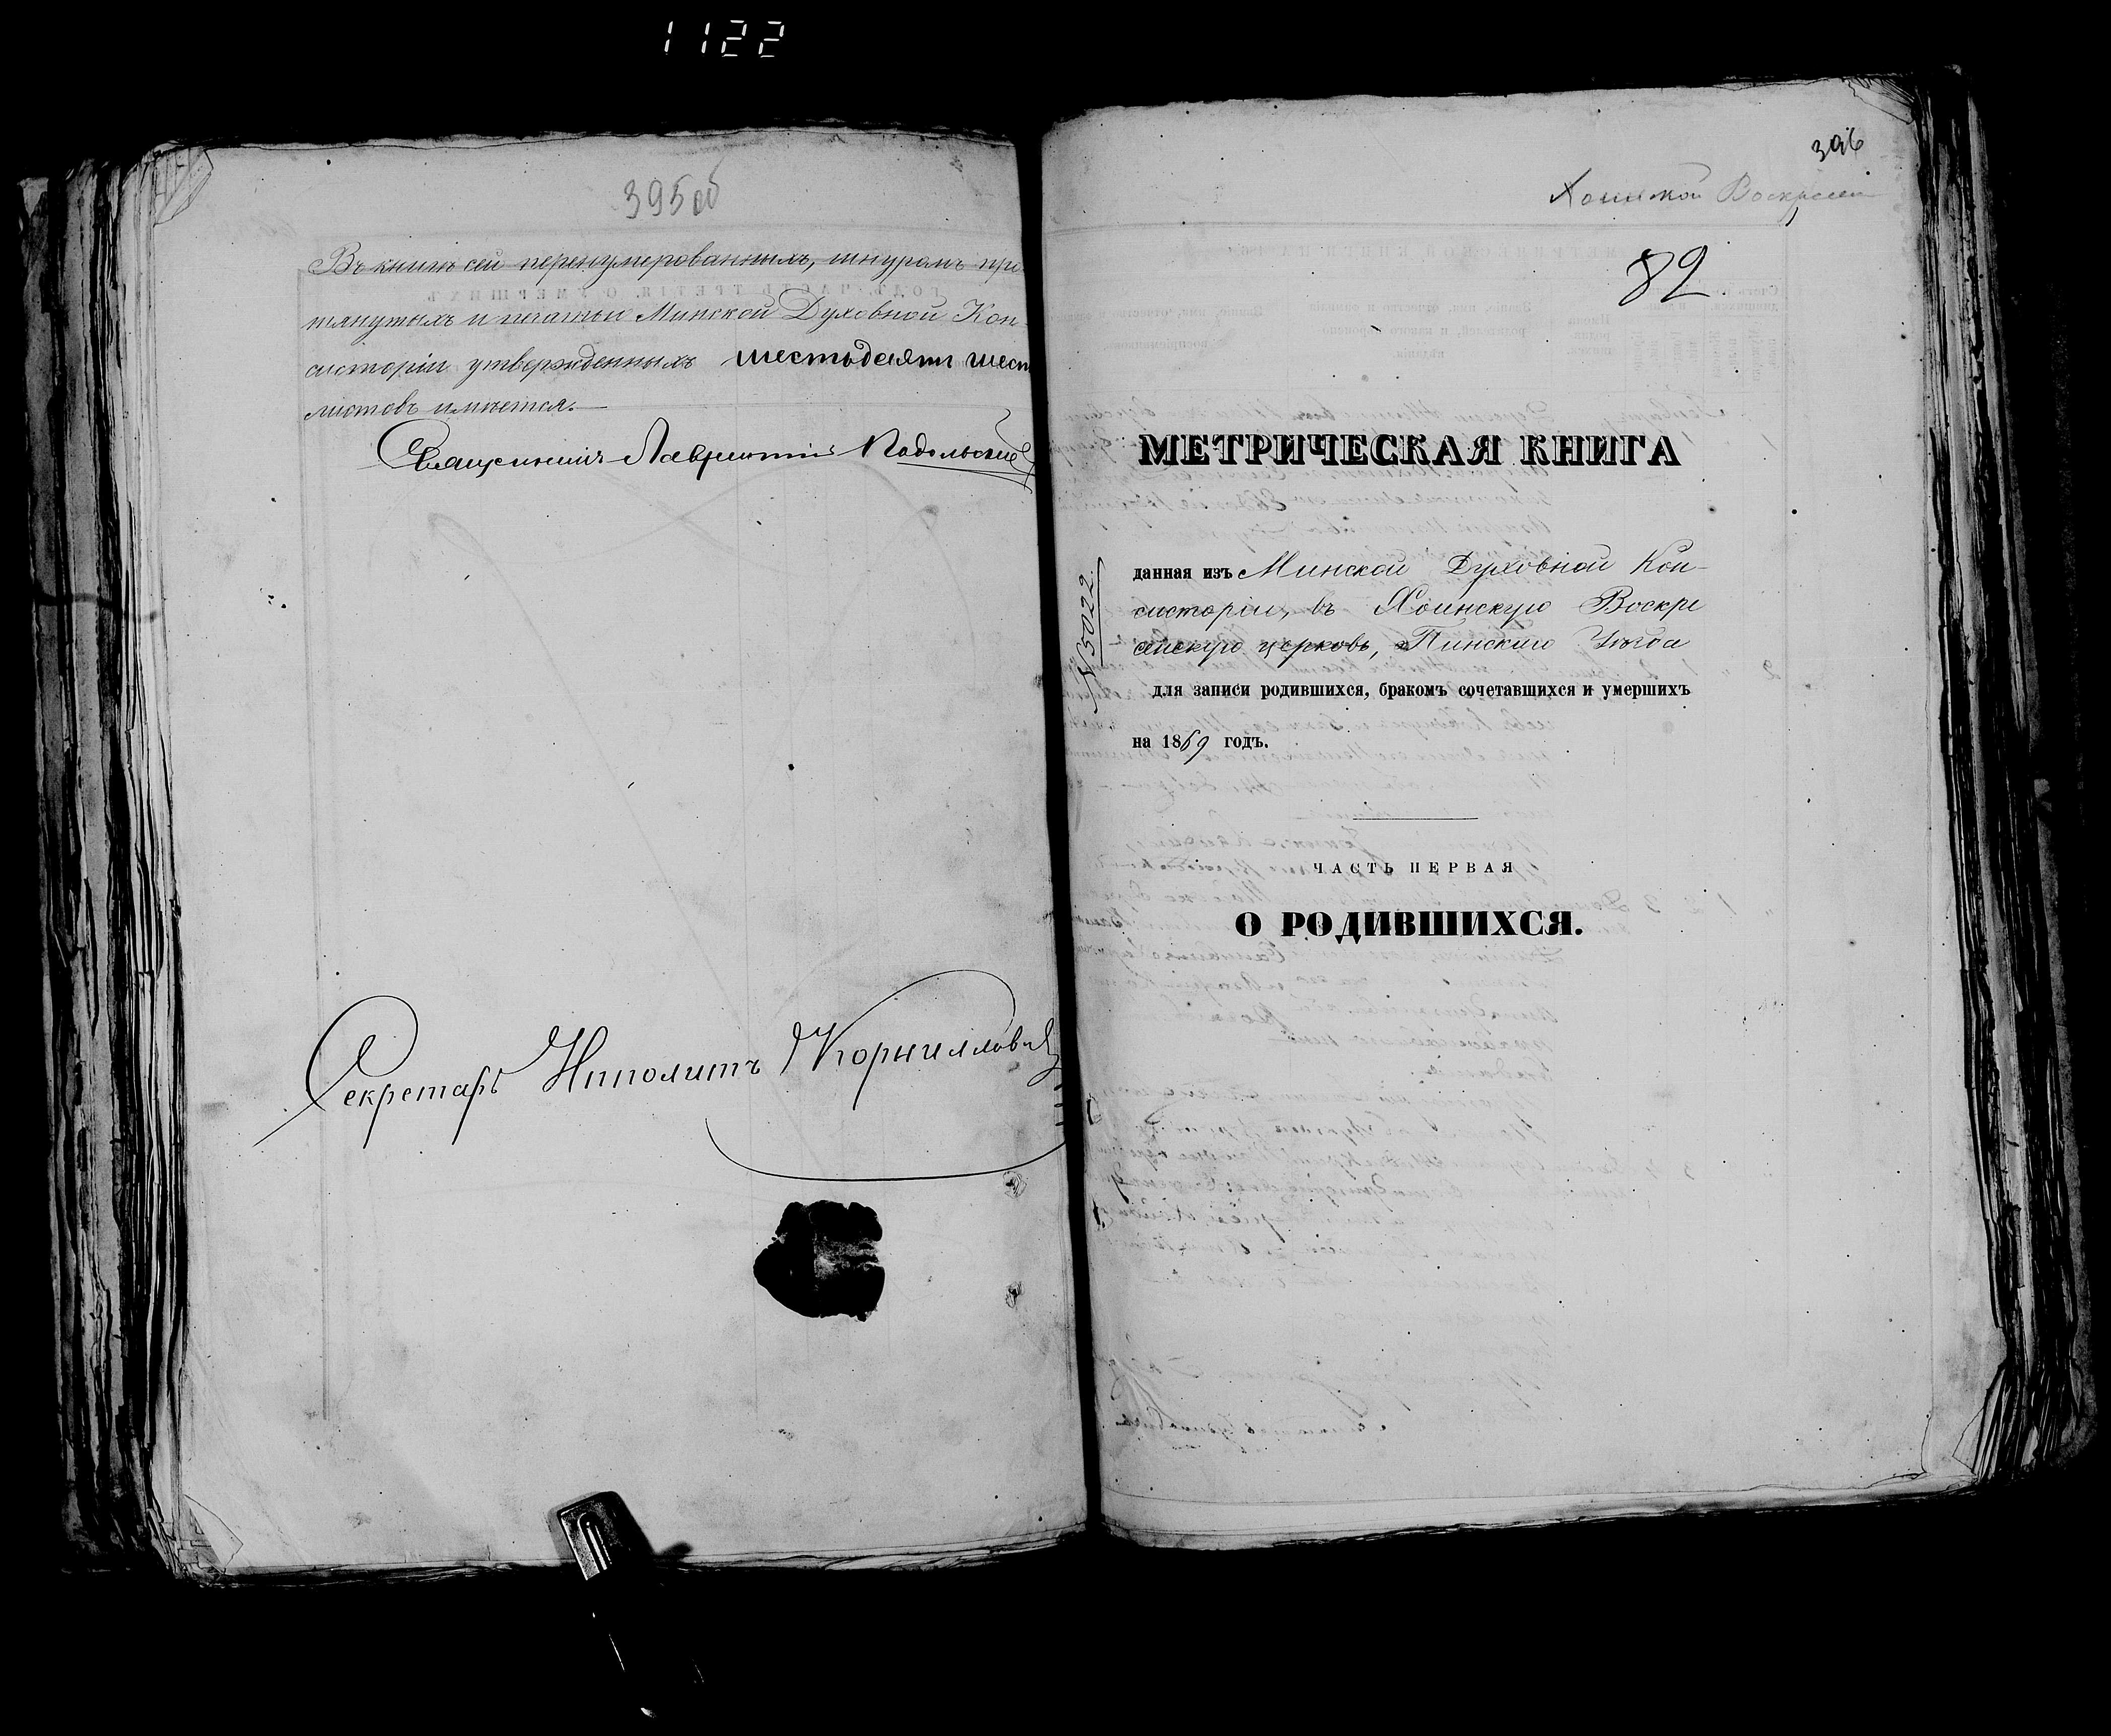 1122
395об
Въ книгѣ сей перенумерованныхъ, шнуромъ про-
тянутыхъ и печатью Минской Духовной Кон-
систоріи утвержденныхъ шестьдесятъ шест
листовъ имѣется.
Священникъ Лаврентій Подольскій
Секретарь Ипполитъ Корнилович
396
Хоинской Воскресен
82
МЕТРИЧЕСКАЯ КНИГА
№ 5022.
данная изъ Минской Духовной Кон-
систоріи, въ Хоинскую Воскре
сенскую церковь, Пинскаго Уѣзда
для записи родившихся, бракомъ сочетавшихся и умершихъ
на 1869 годъ.
ЧАСТЬ ПЕРВАЯ
О РОДИВШИХСЯ.